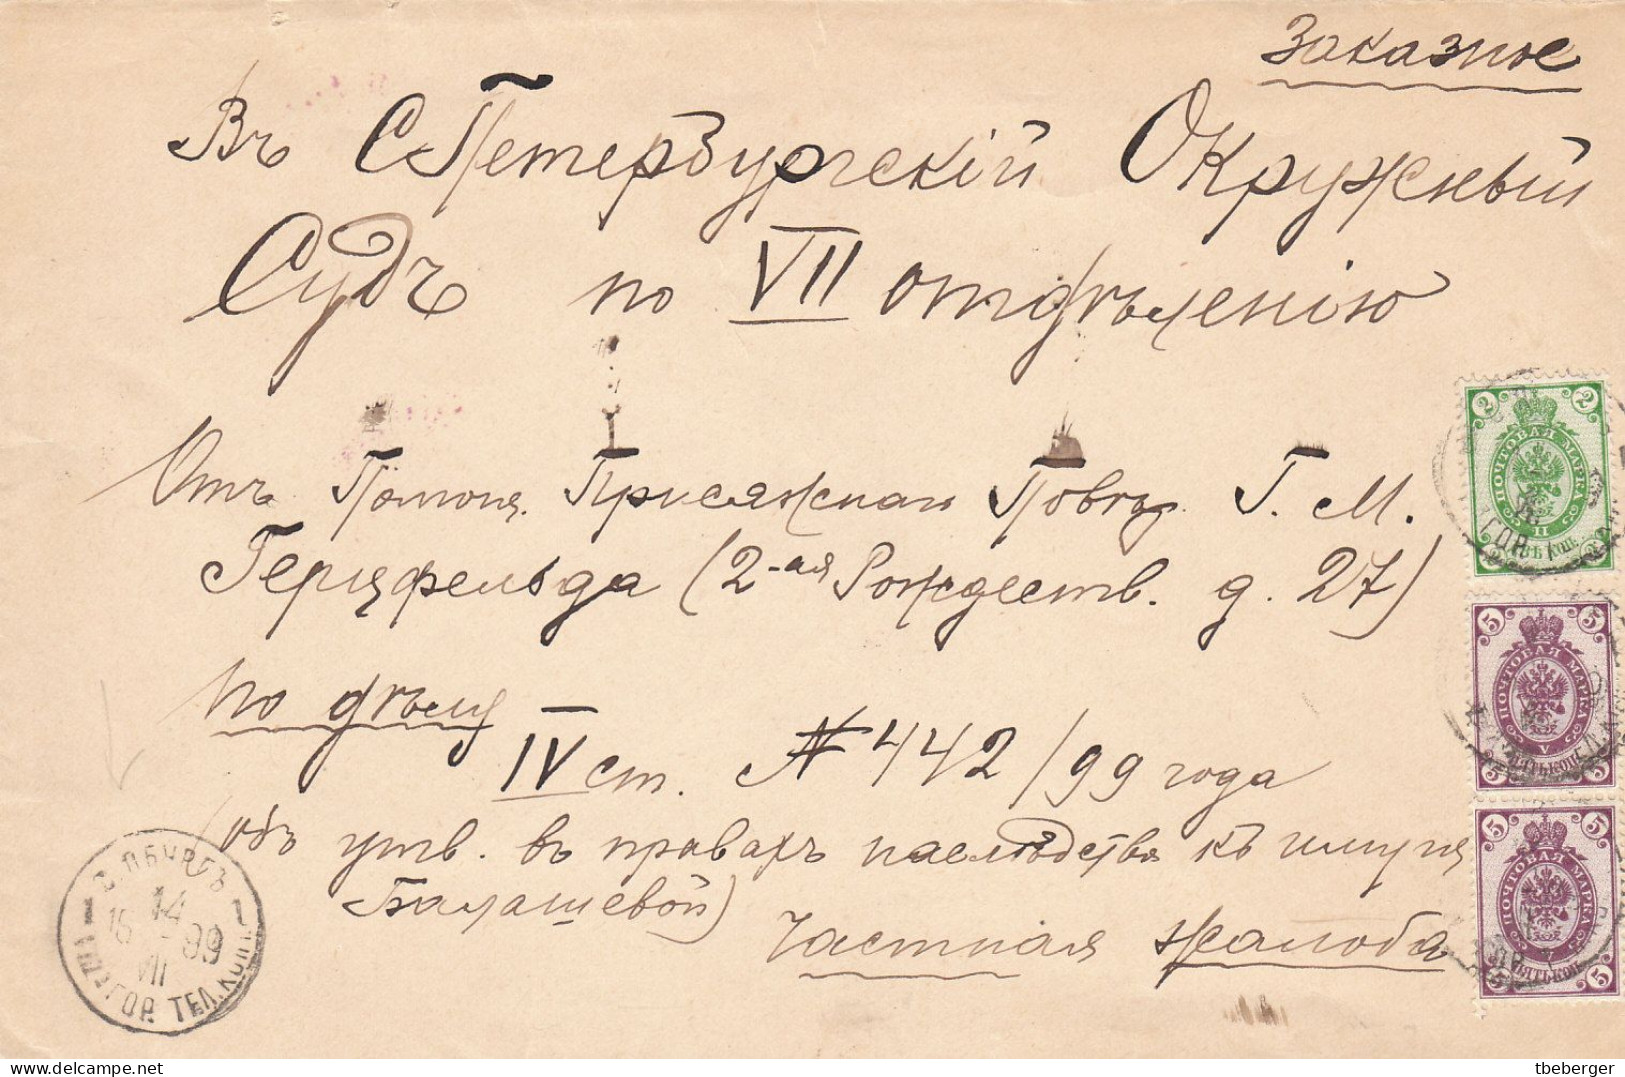 Заказное
Въ СПетербургскій Окружный
Судъ по VII отдѣленію
Отъ Помощн. Присяжнаго Повѣр. Г. М.
Герцфельда (2-ая Рождеств. д. 27)
По дѣлу
IV ст. № 442/99 года
(объ утв. въ правахъ наслѣдства къ имущ
Балашевой)
Частная жалоба
2 2
ПОЧТОВАЯ МАРКА
II
2 ДВѢ КОП. 2
5 5
ПОЧТОВАЯ МАРКА
V
5 ПЯТЬ КОП. 5
5 5
ПОЧТОВАЯ МАРКА
V
5 ПЯТЬ КОП. 5
С.ПБУРГЪ
14
99
VII
ГОР. ТЕЛ. КОНТ
www.delcampe.net
tbeberger